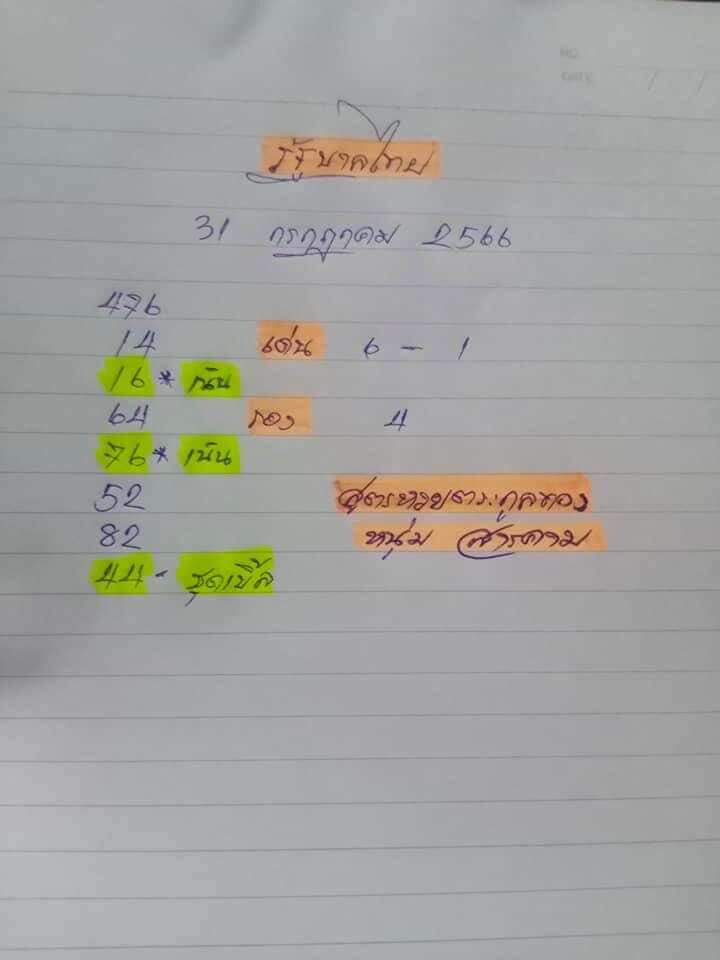 รัฐบาลไทย
31 กรกฎาคม 2566
476
14 เด่น 6 - 1
16 * เน้น
64 รอง 4
76 * เน้น
52 สูตรหวยตระกูลทอง
82 หนุ่ม สารคาม
44 - ชุดเบิ้ล